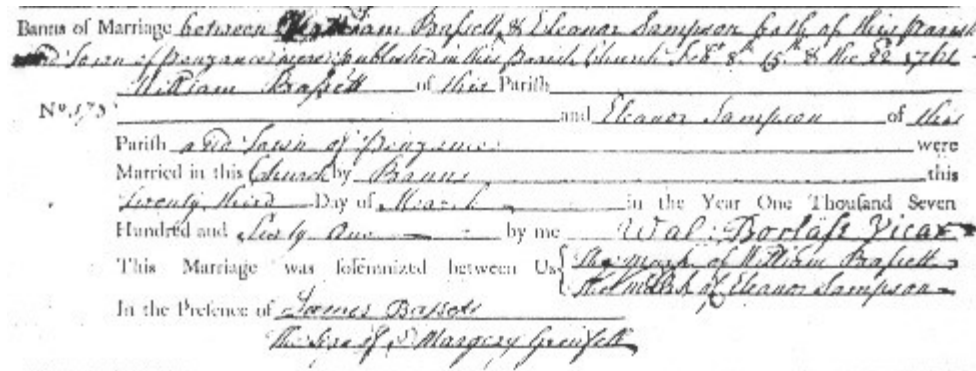 Banns of Marriage between William Baſsett & Eleanor Sampson both of this Parish
and Town of Penzance were published in this Parish Church Feb 8th 15th & the 22 1761
William Baſsett of this Pariſh
No. 173 and Eleanor Sampson of this
Pariſh and Town of Penzance were
Married in this Church by Banns this
Twenty third Day of March in the Year One Thouſand Seven
Hundred and Sixty One by me Wal: Borlaſe Vicar
This Marriage was ſolemnized between Us The mark of William Baſsett
The mark of Eleanor Sampson
In the Preſence of James Baſsett
The Sign of Margery Grenfell